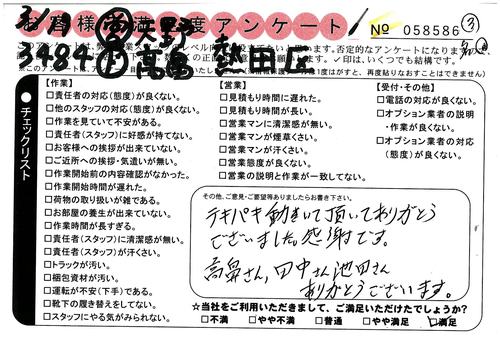 お客様満足度アンケート
№ 058586 ③
3484 熱田区
チェックリスト
【作業】
□責任者の対応(態度)が良くない。
□他のスタッフの対応(態度)が良くない。
□作業を見ていて不安がある。
□責任者(スタッフ)に好感が持てない。
□お客様への挨拶が出来ていない。
□ご近所への挨拶・気遣いが無い。
□作業開始前の内容確認がなかった。
□作業開始時間が遅れた。
□荷物の取り扱いが雑である。
□お部屋の養生が出来ていない。
□作業時間が長すぎる。
□責任者(スタッフ)に清潔感が無い。
□責任者(スタッフ)が汗くさい。
□トラックが汚い。
□梱包資材が汚い。
□運転が不安(下手)である。
□靴下の履き替えをしてない。
□スタッフにやる気がみられない。
【営業】
□見積もり時間に遅れた。
□見積もり時間が長い。
□営業マンに清潔感が無い。
□営業マンが煙草くさい。
□営業マンが汗くさい。
□営業態度が良くない。
□営業の説明と作業が一致してない。
【受付・その他】
□電話の対応が良くない。
□オプション業者の説明
・作業が良くない。
□オプション業者の対応
(態度)が良くない。
その他、ご意見・ご要望等ありましたらお書き下さい。
テキパキ動いて頂いてありがとう
ございました。感謝です。
高鼻さん、田中さん池田さん
ありがとうございます。
☆当社をご利用いただきまして、ご満足いただけたでしょうか?
□不満 □やや不満 □普通 □やや満足 ☑満足